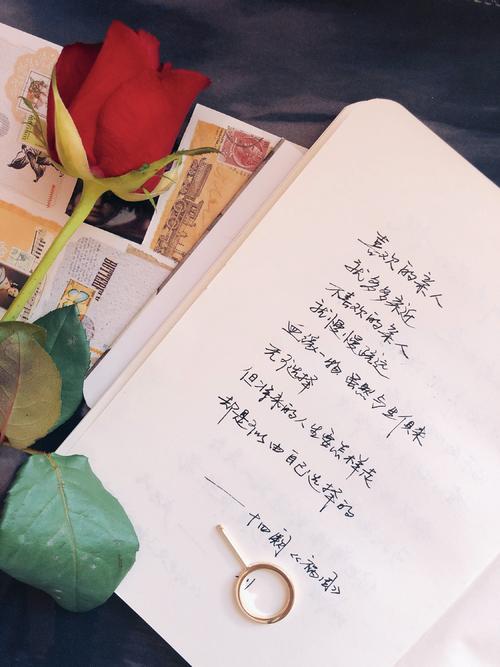 喜欢的亲人
就多多亲近
不喜欢的亲人
就慢慢疏远
血缘一物虽然与生俱来
无可选择
但将来的人生要怎样走
却是可以由自己选择的
——十四阙《祸国》